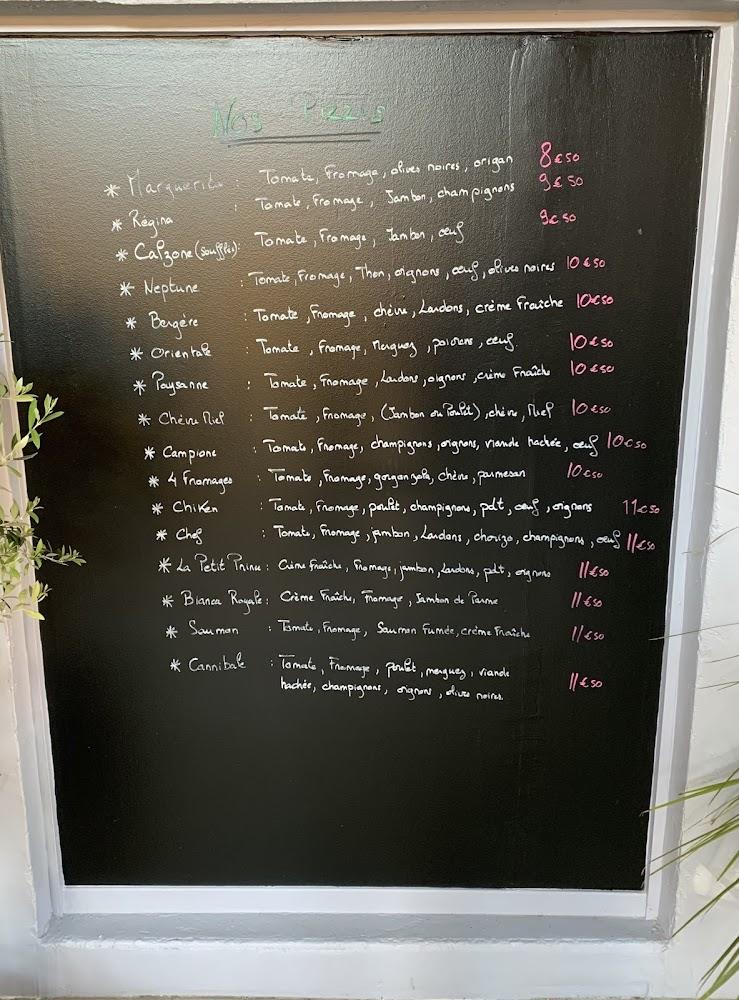 Nos Pizzas
* Marguerita : Tomate, Fromage, olives noires, origan 8€50
* Régina : Tomate, Fromage, Jambon, champignons 9€50
* Calzone (soufflée): Tomate, Fromage, Jambon, œuf 9€50
* Neptune : Tomate, Fromage, Thon, oignons, œuf, olives noires 10€50
* Bergère : Tomate, Fromage, chèvre, Lardons, crème Fraîche 10€50
* Orientale : Tomate, Fromage, Merguez, poivrons, œuf 10€50
* Paysanne : Tomate, Fromage, Lardons, oignons, crème Fraîche 10€50
* Chèvre Miel : Tomate, Fromage, (Jambon ou Poulet), chèvre, Miel 10€50
* Campione : Tomate, Fromage, champignons, oignons, viande hachée, œuf 10€50
* 4 Fromages : Tomate, Fromage, gorgonzola, chèvre, parmesan 10€50
* Chiken : Tomate, Fromage, poulet, champignons, pdt, œuf, oignons 11€50
* Chef : Tomate, Fromage, jambon, Lardons, chorizo, champignons, œuf 11€50
* La Petit Prince : Crème fraîche, Fromage, jambon, Lardons, pdt, oignons 11€50
* Bianca Royale : Crème Fraîche, Fromage, Jambon de Parme 11€50
* Saumon : Tomate, Fromage, Saumon Fumée, crème Fraîche 11€50
* Cannibale : Tomate, Fromage, poulet, merguez, viande
hachée, champignons, oignons, olives noires. 11€50